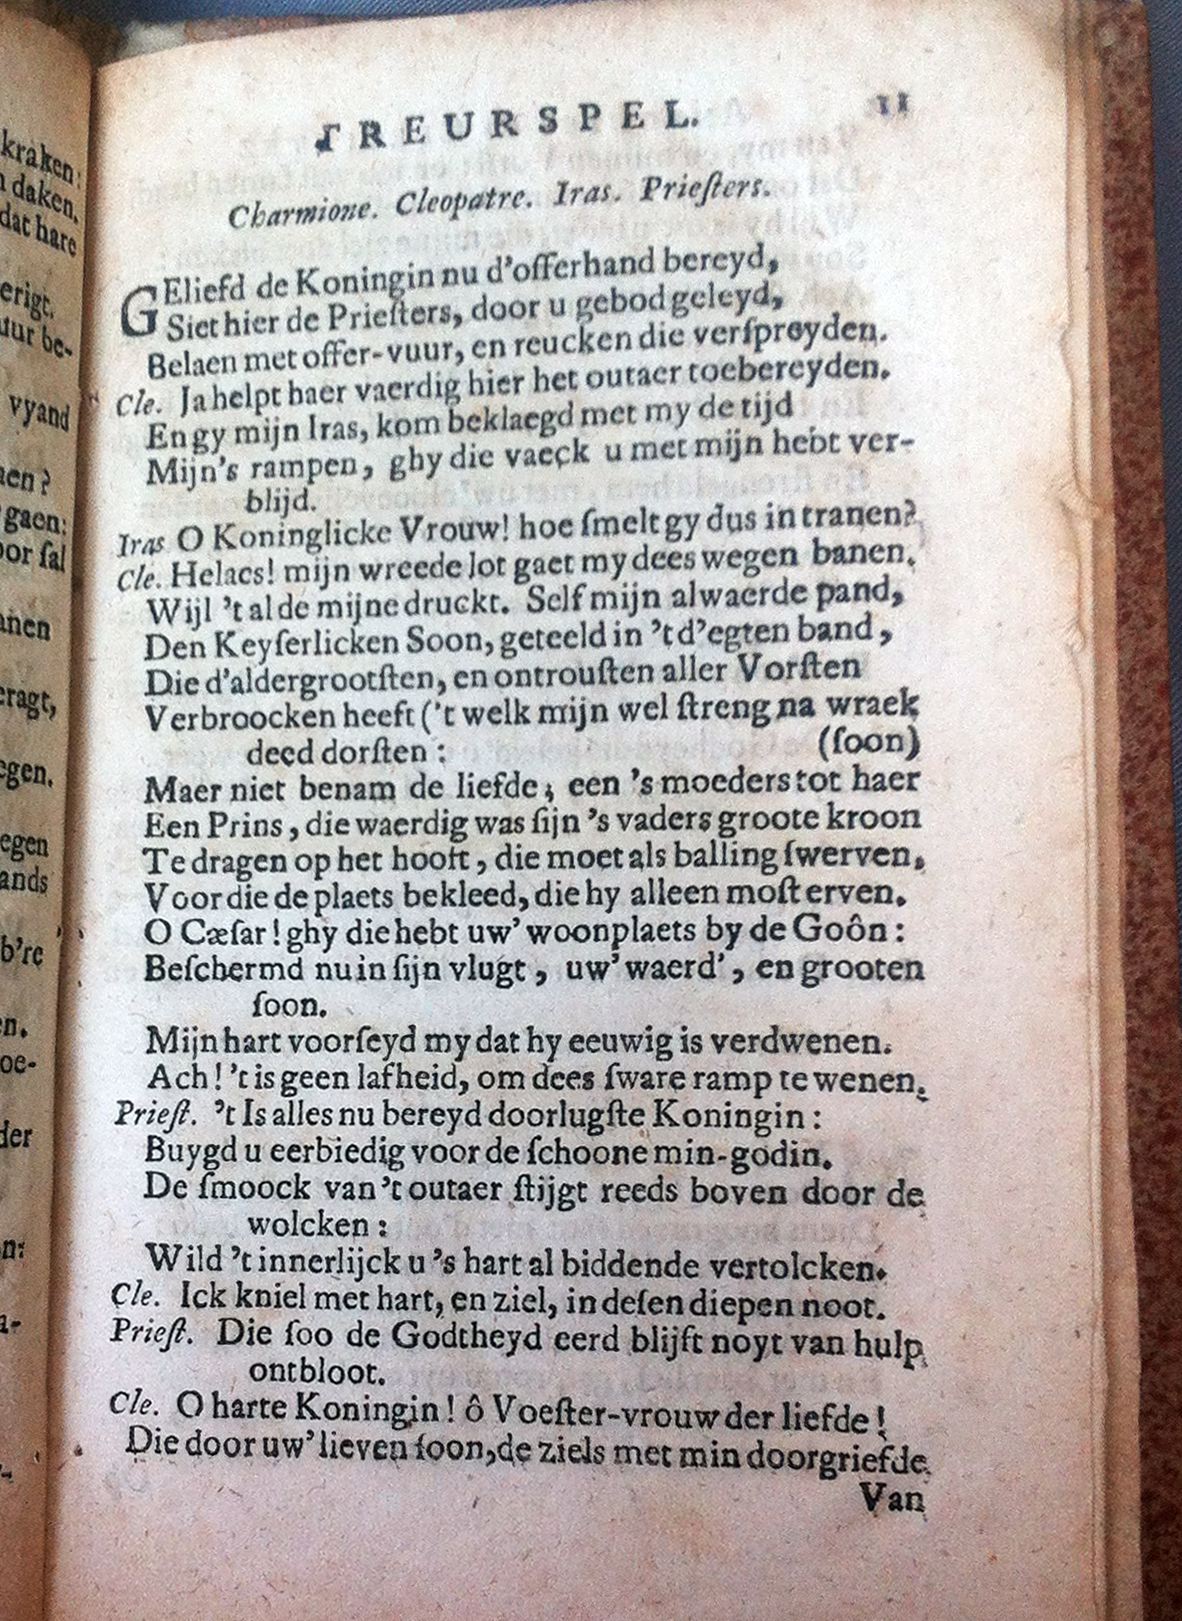 kraken:
daken.
dat hare
erigt.
uur be-
vyand
nen?
gaen:
oor ſal
anen
eragt,
egen.
egen
ands
b're
en.
oe-
der
n:
TREURSPEL. 11
Charmione. Cleopatre. Iras. Prieſters.
GEliefd de Koningin nu d'offerhand bereyd,
Siet hier de Prieſters, door u gebod geleyd,
Belaen met offer-vuur, en reucken die verſpreyden.
Cle. Ja helpt haer vaerdig hier het outaer toebereyden.
En gy mijn Iras, kom beklaegd met my de tijd
Mijn's rampen, ghy die vaeck u met mijn hebt ver-
blijd.
Iras O Koninglicke Vrouw! hoe ſmelt gy dus in tranen?
Cle. Helacs! mijn wreede lot gaet my dees wegen banen.
Wijl 't al de mijne druckt. Self mijn alwaerde pand,
Den Keyſerlicken Soon, geteeld in 't d'egten band,
Die d'aldergrootſten, en ontrouſten aller Vorſten
Verbroocken heeft ('t welk mijn wel ſtreng na wraek
deed dorſten: (ſoon)
Maer niet benam de liefde; een 's moeders tot haer
Een Prins, die waerdig was ſijn 's vaders groote kroon
Te dragen op het hooft, die moet als balling ſwerven.
Voor die de plaets bekleed, die hy alleen moſt erven.
O Cæſar! ghy die hebt uw' woonplaets by de Goôn:
Beſchermd nu in ſijn vlugt, uw' waerd', en grooten
ſoon.
Mijn hart voorſeyd my dat hy eeuwig is verdwenen.
Ach! 't is geen lafheid, om dees ſware ramp te wenen.
Prieſt. 't Is alles nu bereyd doorlugſte Koningin:
Buygd u eerbiedig voor de ſchoone min-godin.
De ſmoock van 't outaer ſtijgt reeds boven door de
wolcken:
Wild 't innerlijck u 's hart al biddende vertolcken.
Cle. Ick kniel met hart, en ziel, in deſen diepen noot.
Prieſt. Die ſoo de Godtheyd eerd blijft noyt van hulp
ontbloot.
Cle. O harte Koningin! ô Voeſter-vrouw der liefde!
Die door uw' lieven ſoon, de ziels met min doorgriefde
Van